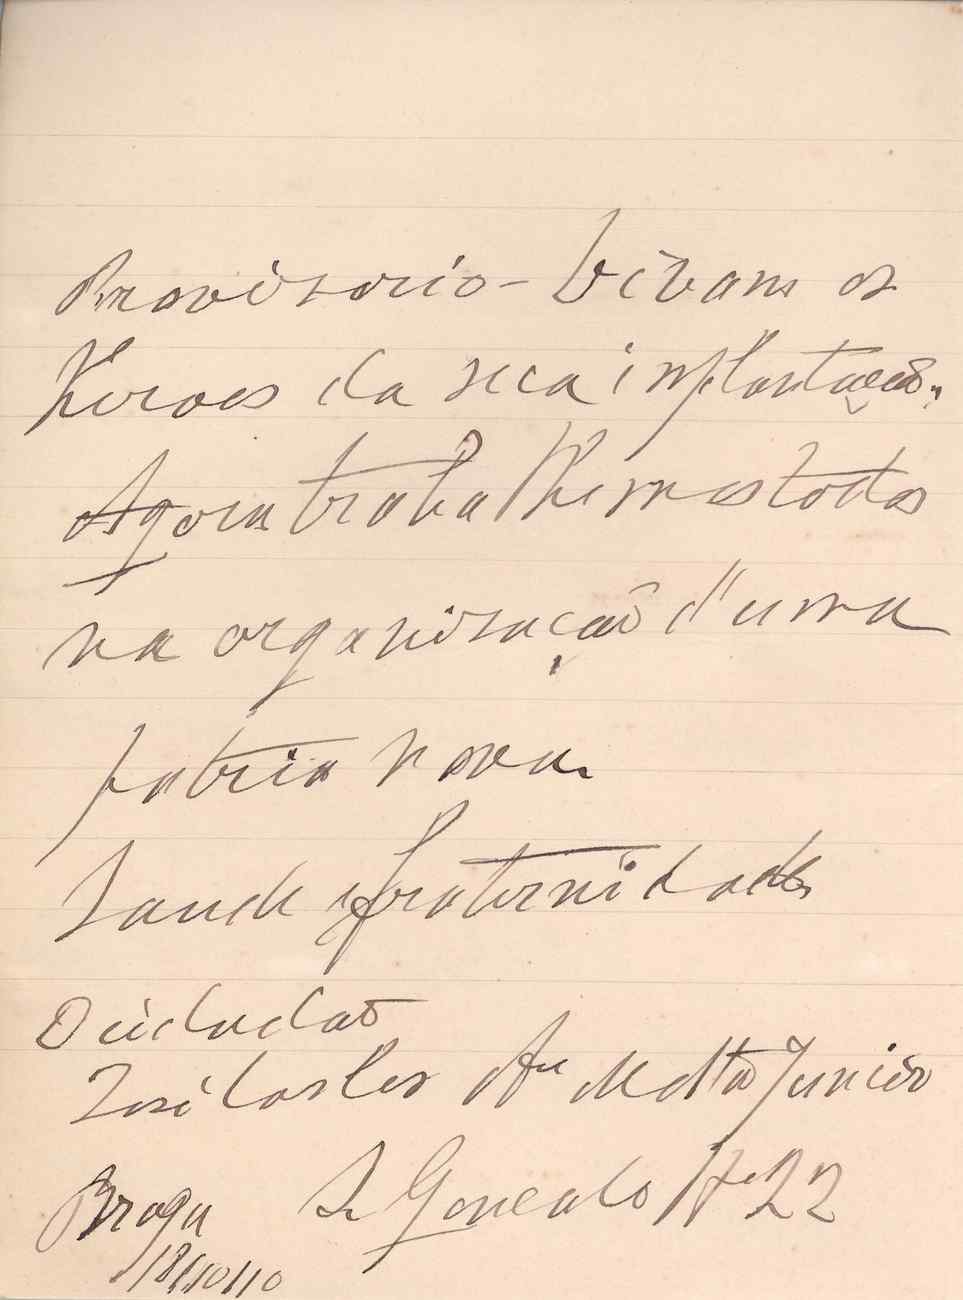 Provisorio - Vivam os
Heroes da sua implantação,
Agora trabalhemos todos
na organisação d'uma
patria nova.
Saude e fraternidade
O cidadão
José Carlos da Motta Junior
Braga S. Gonçalo Nº 22
18/10/10